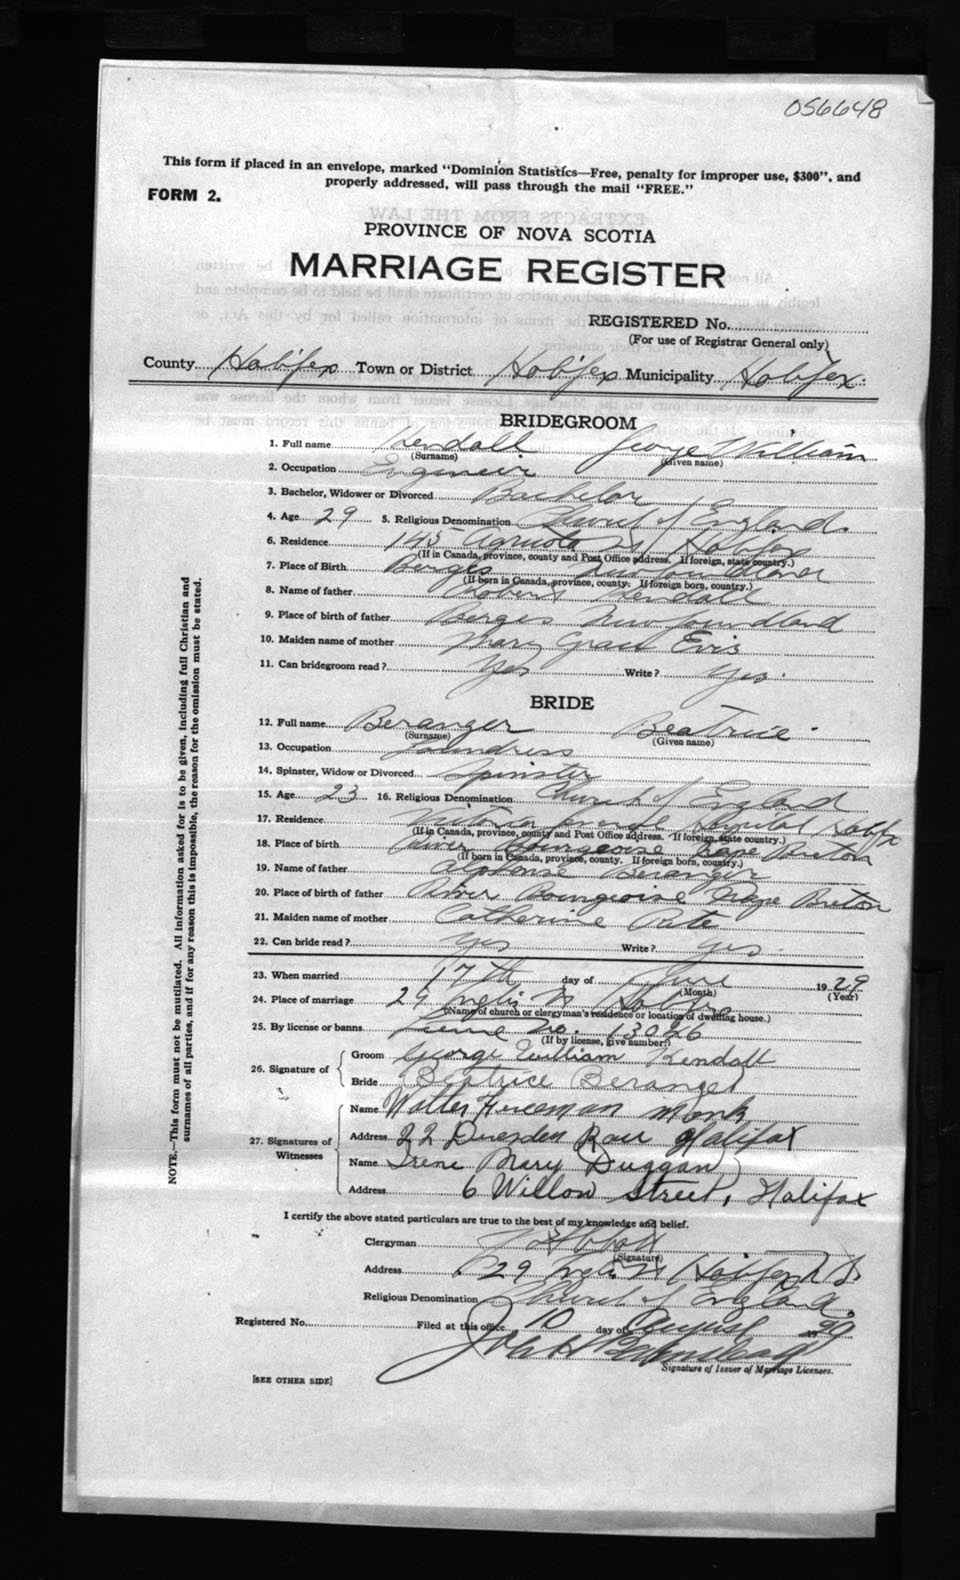 056648
This form if placed in an envelope, marked "Dominion Statistics—Free, penalty for improper use, $300", and
properly addressed, will pass through the mail "FREE."
FORM 2.
PROVINCE OF NOVA SCOTIA
MARRIAGE REGISTER
REGISTERED No.
(For use of Registrar General only)
County Halifax Town or District Halifax Municipality Halifax
BRIDEGROOM
1. Full name Kendall George William
(Surname) (Given name)
2. Occupation Engineer
3. Bachelor, Widower or Divorced Bachelor
4. Age 29 5. Religious Denomination Church of England
6. Residence 145 Agricola St Halifax
(If in Canada, province, county and Post Office address. If foreign, state country.)
7. Place of Birth Burges Newfoundland
(If born in Canada, province, county. If foreign born, country.)
8. Name of father Robert Kendall
9. Place of birth of father Burges Newfoundland
10. Maiden name of mother Mary Grace
11. Can bridegroom read? Yes Write? Yes.
BRIDE
12. Full name Beranger Beatrice
(Surname) (Given name)
13. Occupation Laundress
14. Spinster, Widow or Divorced Spinster
15. Age 23 16. Religious Denomination Church of England
17. Residence Victoria General Hospital Halifax
(If in Canada, province, county and Post Office address. If foreign, state country.)
18. Place of birth River Bourgeoise Cape Breton
(If born in Canada, province, county. If foreign born, country.)
19. Name of father Alphonse Beranger
20. Place of birth of father River Bourgeoise Cape Breton
21. Maiden name of mother Catherine Pate
22. Can bride read? Yes Write? Yes
23. When married 17th day of June 1929
(Month) (Year)
24. Place of marriage 29 Inglis St Halifax
(Name of church or clergyman's residence or location of dwelling house.)
25. By license or banns License No. 13026
(If by license, give number.)
26. Signature of
Groom George William Kendall
Bride Beatrice Beranger
27. Signatures of Witnesses
Name Walter Freeman Monk
Address 22 Dresden Row Halifax
Name Irene Mary (Duggan)
Address 6 Willow Street, Halifax
I certify the above stated particulars are true to the best of my knowledge and belief.
Clergyman
(Signature)
Address 29 Inglis St Halifax N S.
Religious Denomination Church of England.
Registered No. Filed at this office 10 day of August 1929
Signature of Issuer of Marriage Licenses.
[SEE OTHER SIDE]
NOTE.—This form must not be mutilated. All information asked for is to be given, including full Christian and
surnames of all parties, and if for any reason this is impossible, the reason for the omission must be stated.